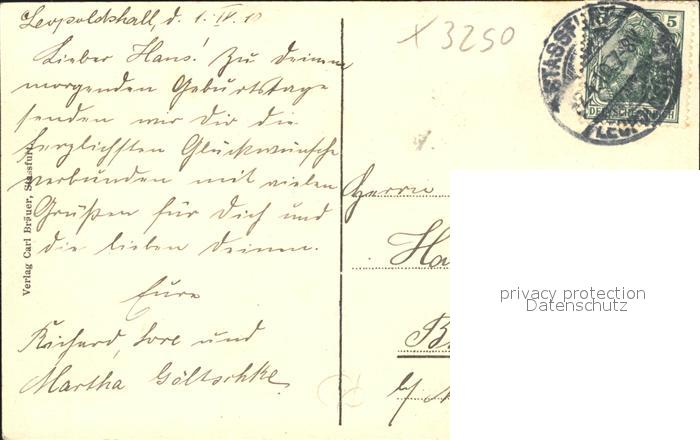 Leopoldshall, d. 1. IV. 10
X 3250
Lieber Hans! Zu Deinem
morgenden Geburtstage
senden wir Dir die
herzlichsten Glückwünsche
verbunden mit vielen
Grüßen für Dich und
die lieben Deinen.
Eure
Richard, Lore und
Martha Göltschke
Verlag Carl Bräuer, Stassfurt.
STASSFURT
LEOPOLDSHALL
5
DEUTSCHES REICH
Herrn
Ha
B
b/
privacy protection
Datenschutz